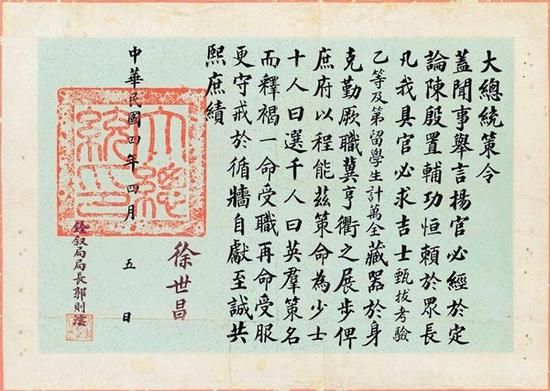 大總統策令
蓋聞事舉言揚官必經於定
論陳殷置輔功恒賴於眾長
凡我具官必求吉士甄拔考驗
乙等及第留學生計萬全藏器於身
克勤厥職冀亨衢之展步俾
庶府以程能茲策命為少士
十人曰選千人曰英羣策名
而釋褐一命受職再命受服
更守戒於循牆自獻至誠共
熙庶績
徐世昌
中華民國四年四月五日
大總統印
銓叙局局長郭則澐